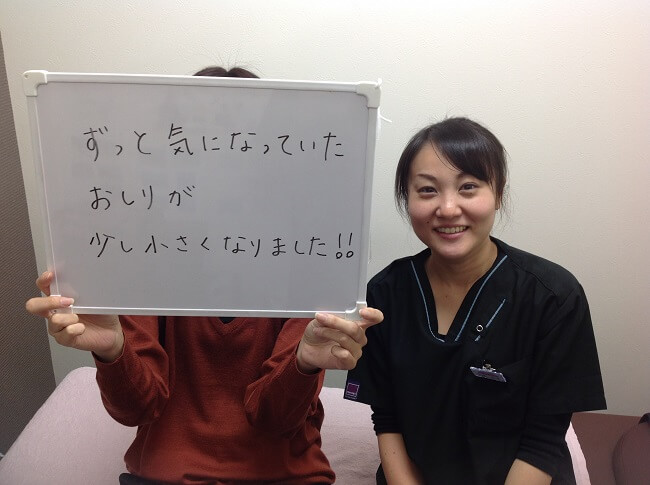 ずっと気になっていた
おしりが
少し小さくなりました!!